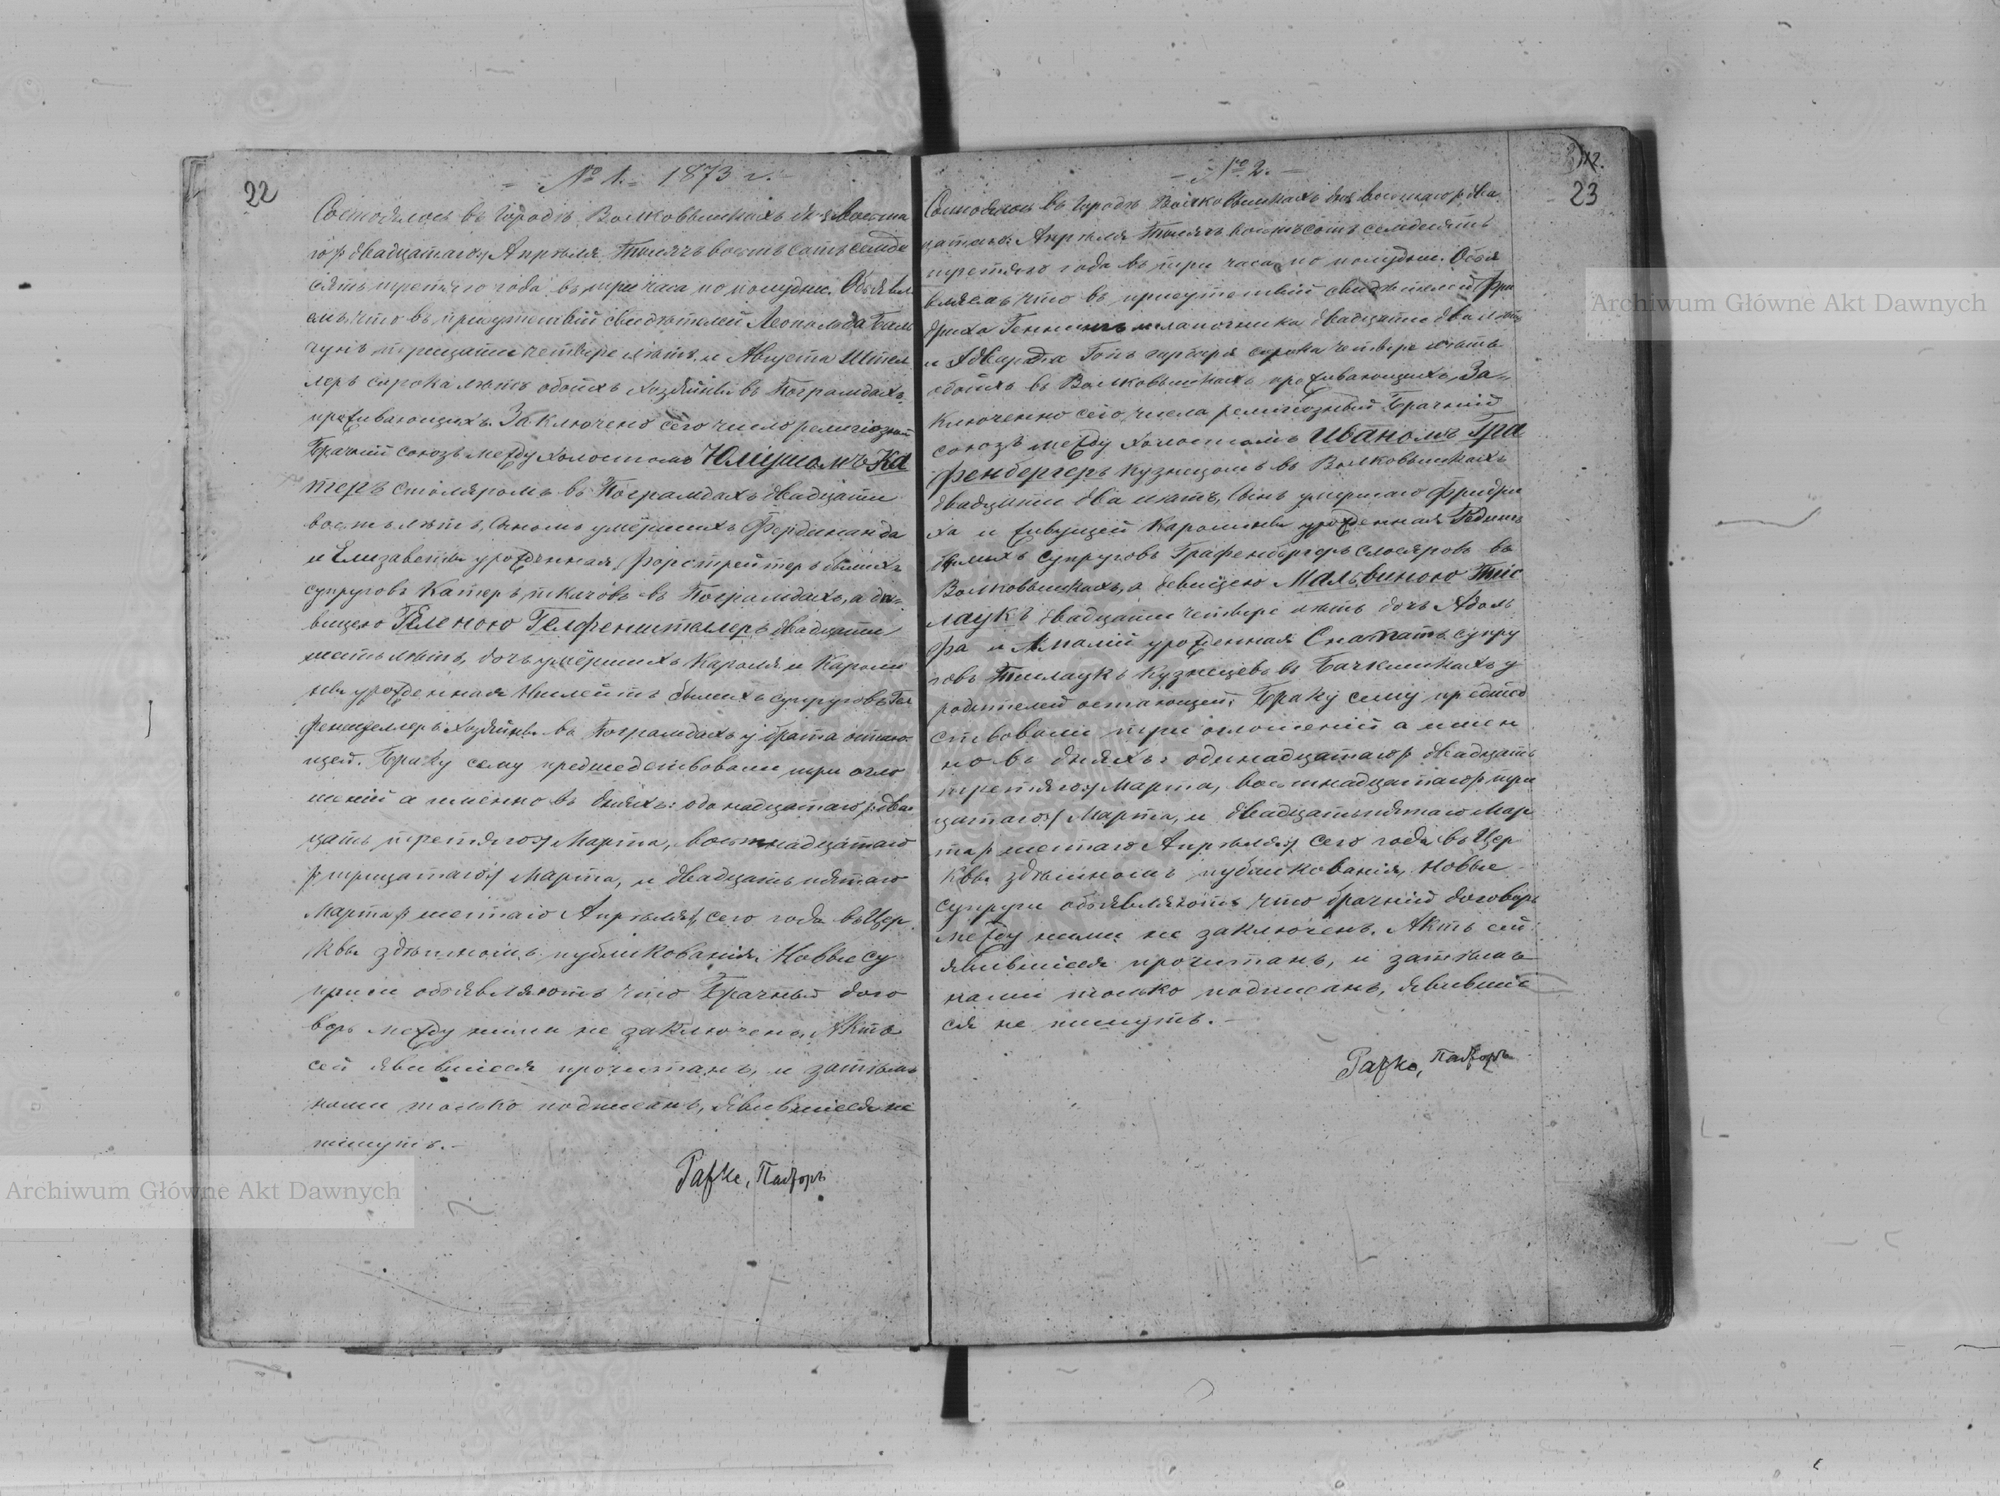 22
№ 1. 1873 г.
Состоялось въ Городѣ Волковышкахъ дня Восьма
го/: двадцатаго/ Апрѣля Тысячъ восемьсотъ семьде
сятъ третяго года въ три часа по полудни. Объявля
емъ что въ присутствій свидѣтелей Леопольда
тридцати четыре лѣтъ и Августа
сорока лѣтъ обоихъ хозяйны въ Пограмдахъ
проживающихъ. Заключено сего число религіозный
Брачній союзъ между холостомъ Юліушомъ Ка
теръ столяромъ въ Пограмдахъ двадцати
восемь лѣтъ, Сыномъ умёршихъ Фердинанда
и Елизаветы урожденная Форстрейтеръ бывшихъ
супруговъ Катеръ, ткачовъ въ Пограмдахъ, а дѣ-
вицею Геленою Гелфенштеллеръ двадцати
шесть лѣтъ, дочь умёршихъ Кароля и Кароли
ны урожденная бывшихъ супруговъ Гел
фенштеллеръ хозяйны въ Пограмдахъ у брата остаю-
щей. Браку сему предшедствовали три огло
шеній а именно въ дняхъ: одинадцатаго/: два
цать третяго/ Марта, восемнадцатаго
/: трицатаго/ Марта, и двадцать пятаго
Марта/: шестаго Апрѣля/ сего года въ Цер
квы здѣшномъ публикованія, Новые су
пруги объявляютъ что Брачный дого
воръ между ними не заключено, Актъ
сей явившіеся прочитанъ, и затѣмъ
нами только подписанъ, явившіеся не
пишутъ.—
Пасторъ
№ 2.
112.
23
Состоялось въ Городѣ Волковышкахъ дня восьмаго/: два
цатаго/ Апрѣля Тысячъ восемьсотъ семьдесятъ
третяго года въ три часа по полудни. Объя
вляемъ что въ присутствій свидѣтелей Фри
дриха двадцати два лѣтъ
и Адварда сорока четыре лѣтъ
обоихъ въ Волковышкахъ проживающихъ, За-
ключенно сего числа религіозный Брачній
союзъ между холостомъ Иваномъ Гра
фенбергеръ кузнецомъ въ Волковышкахъ
двадцати два лѣтъ, Сынъ умершаго Фридри
ха и живущей Каролины урожденная
бывшихъ супруговъ Графенбергеръ слосяровъ въ
Волковышкахъ, а дѣвицею Мальвиною Тис
лаукъ двадцати четыре лѣтъ дочь Адоль
фа и Амалій урожденная супру
говъ Тислаукъ кузнецевъ въ у
родителей остающей, Браку сему предшед
ствовали три оглошеній а имен
но въ дняхъ: одинадцатаго/: двадцать
третяго/ Марта, восемнадцатаго/: три
цатаго/ Марта, и двадцать пятаго Мар
та/: шестаго Апрѣля/ сего года въ Цер
квы здѣшномъ публикованія, Новые
супруги объявляютъ что брачній договоръ
между ними не заключенъ. Актъ сей
явившіеся прочитанъ, и затѣмъ
нами только подписанъ, явившіе
ся не пишутъ.—
Пасторъ
Archiwum Główne Akt Dawnych
Archiwum Główne Akt Dawnych